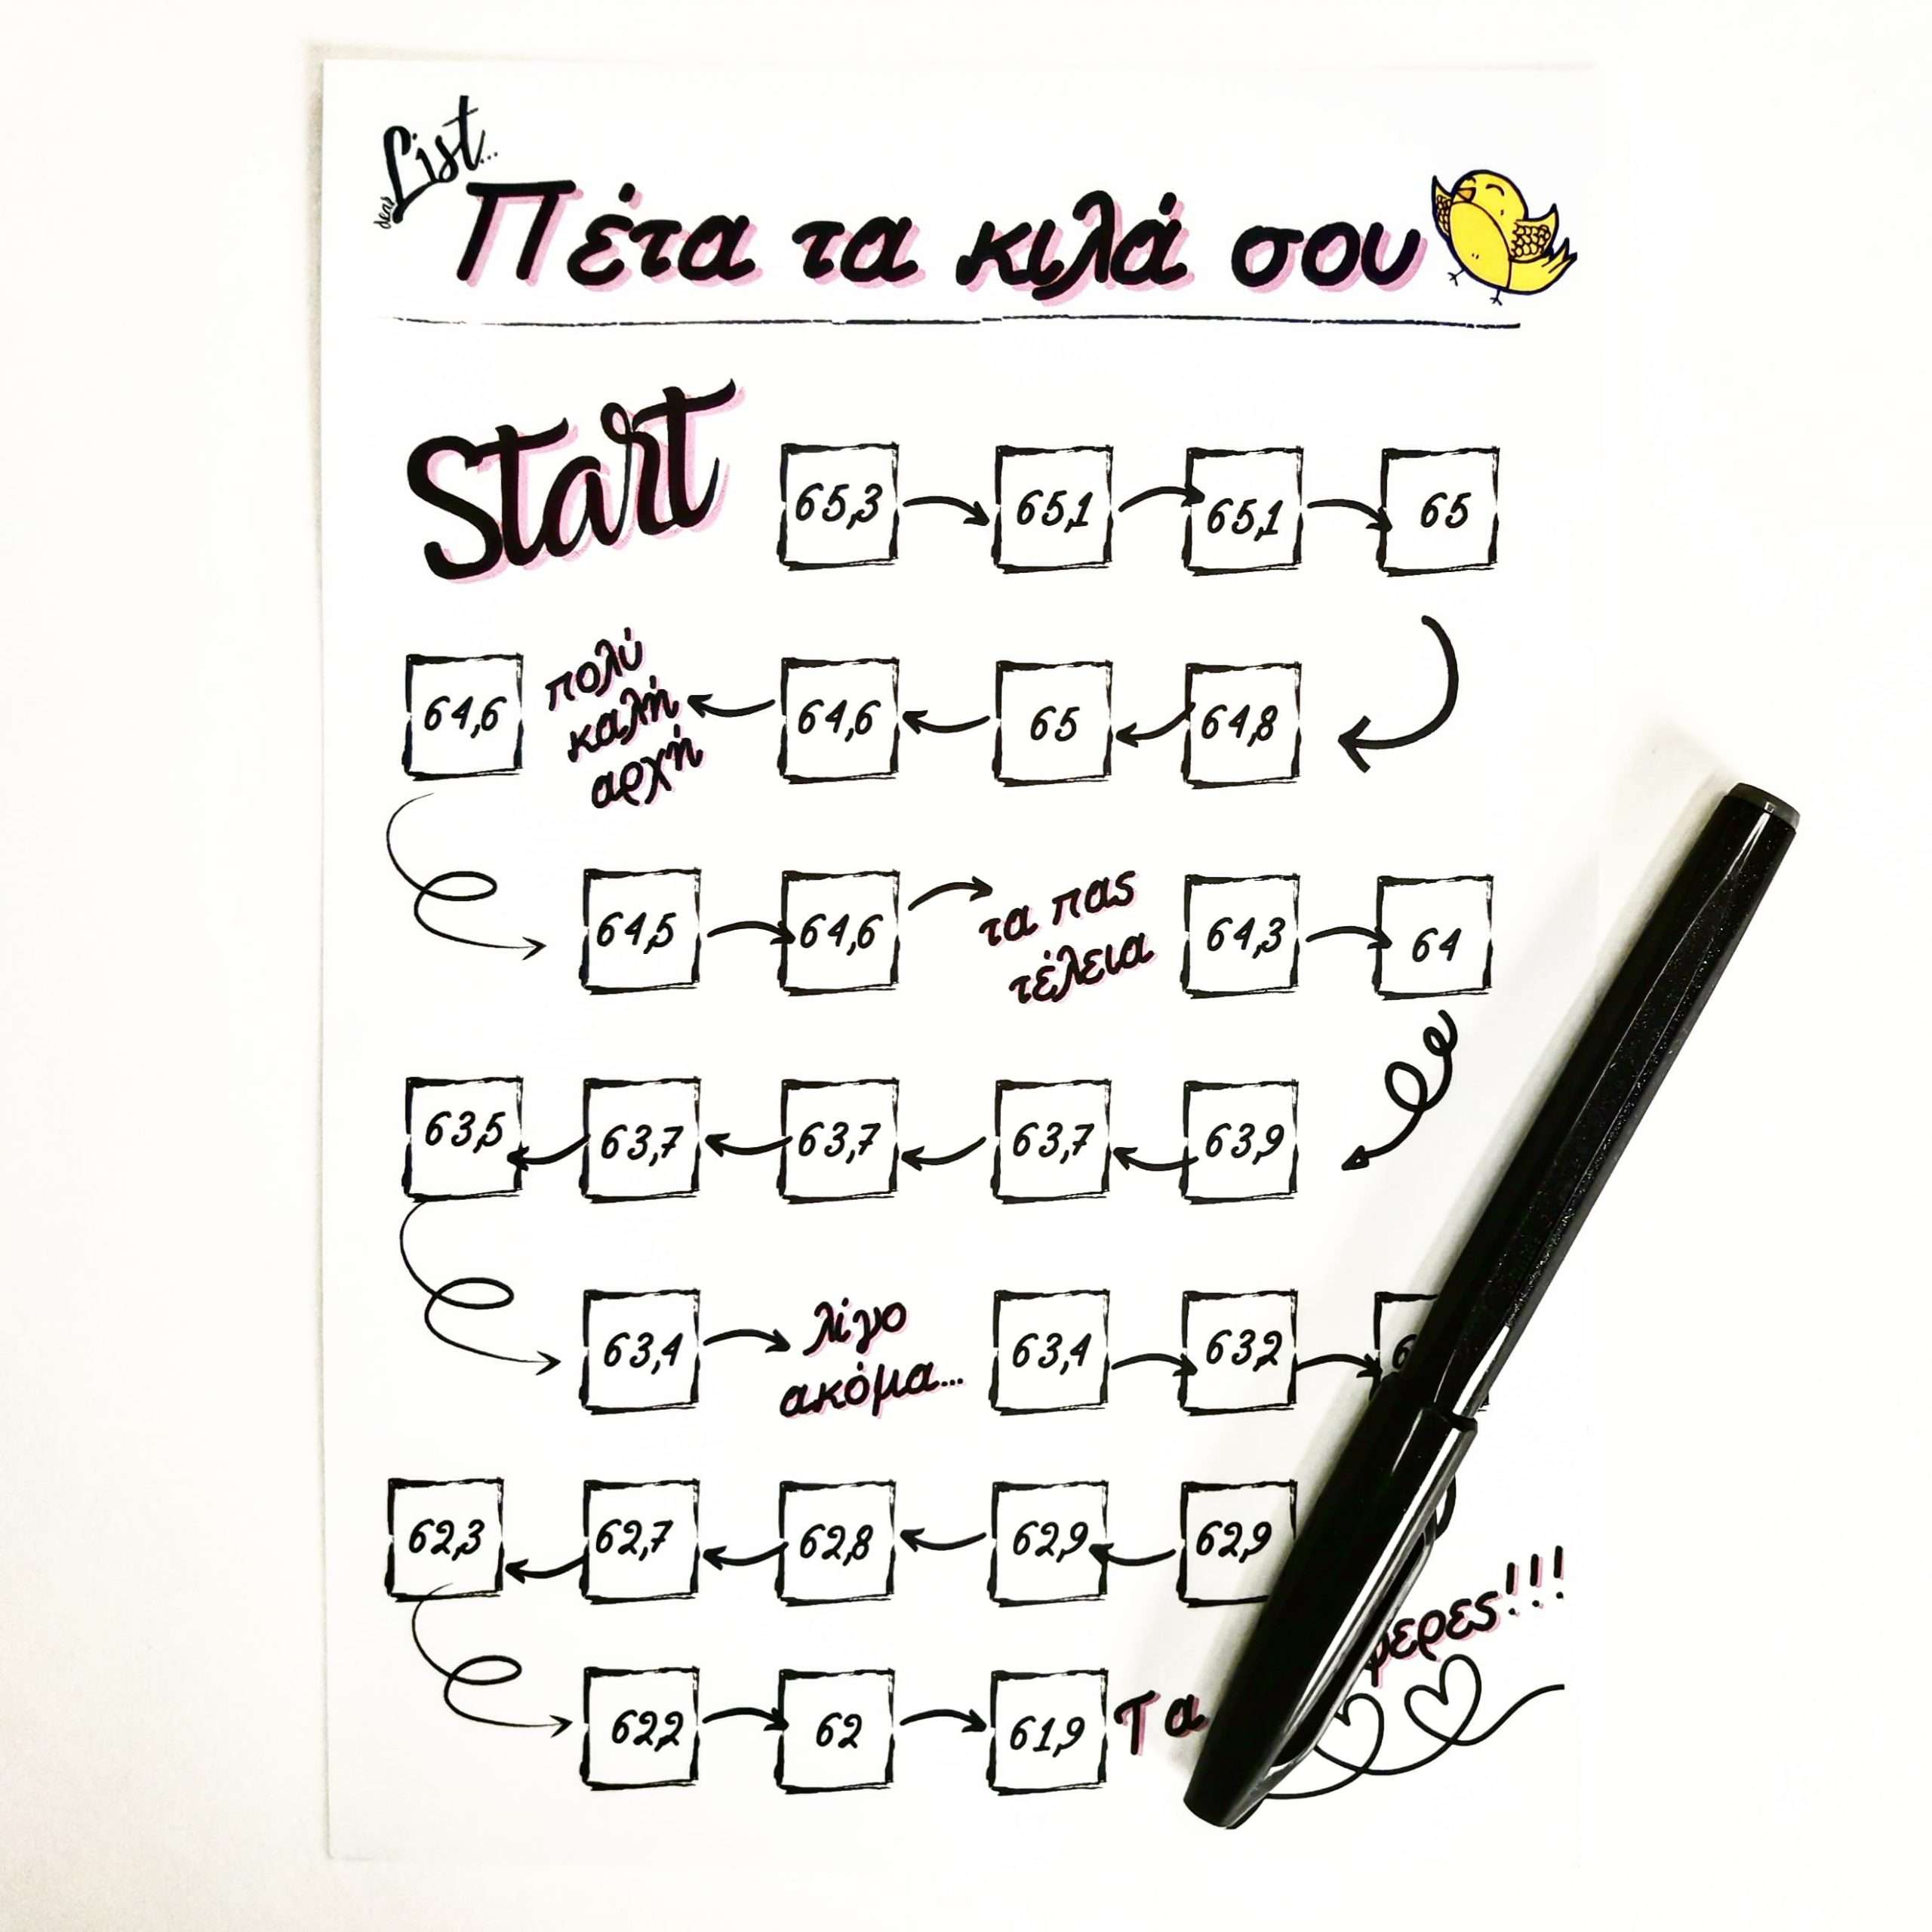 dear List...
Πέτα τα κιλά σου
Start
65,3 65,1 65,1 65
64,6 πολύ καλή αρχή 64,6 65 64,8
64,5 64,6 τα πας τέλεια 64,3 64
63,5 63,7 63,7 63,7 63,9
63,4 λίγο ακόμα... 63,4 63,2
62,3 62,7 62,8 62,9 62,9
62,2 62 61,9 Τα